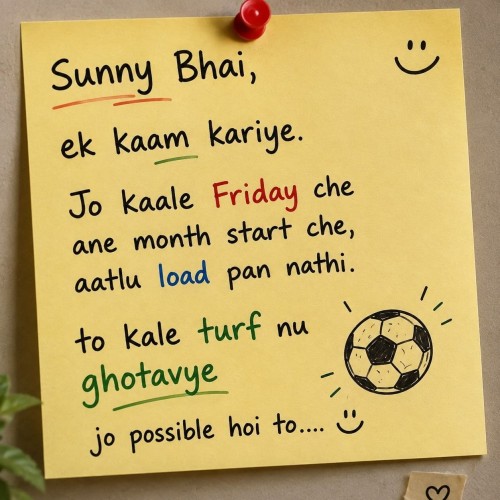 Sunny Bhai,
ek kaam kariye.
Jo kaale Friday che
ane month start che,
aatlu load pan nathi.
to kale turf nu
ghotavye
jo possible hoi to....